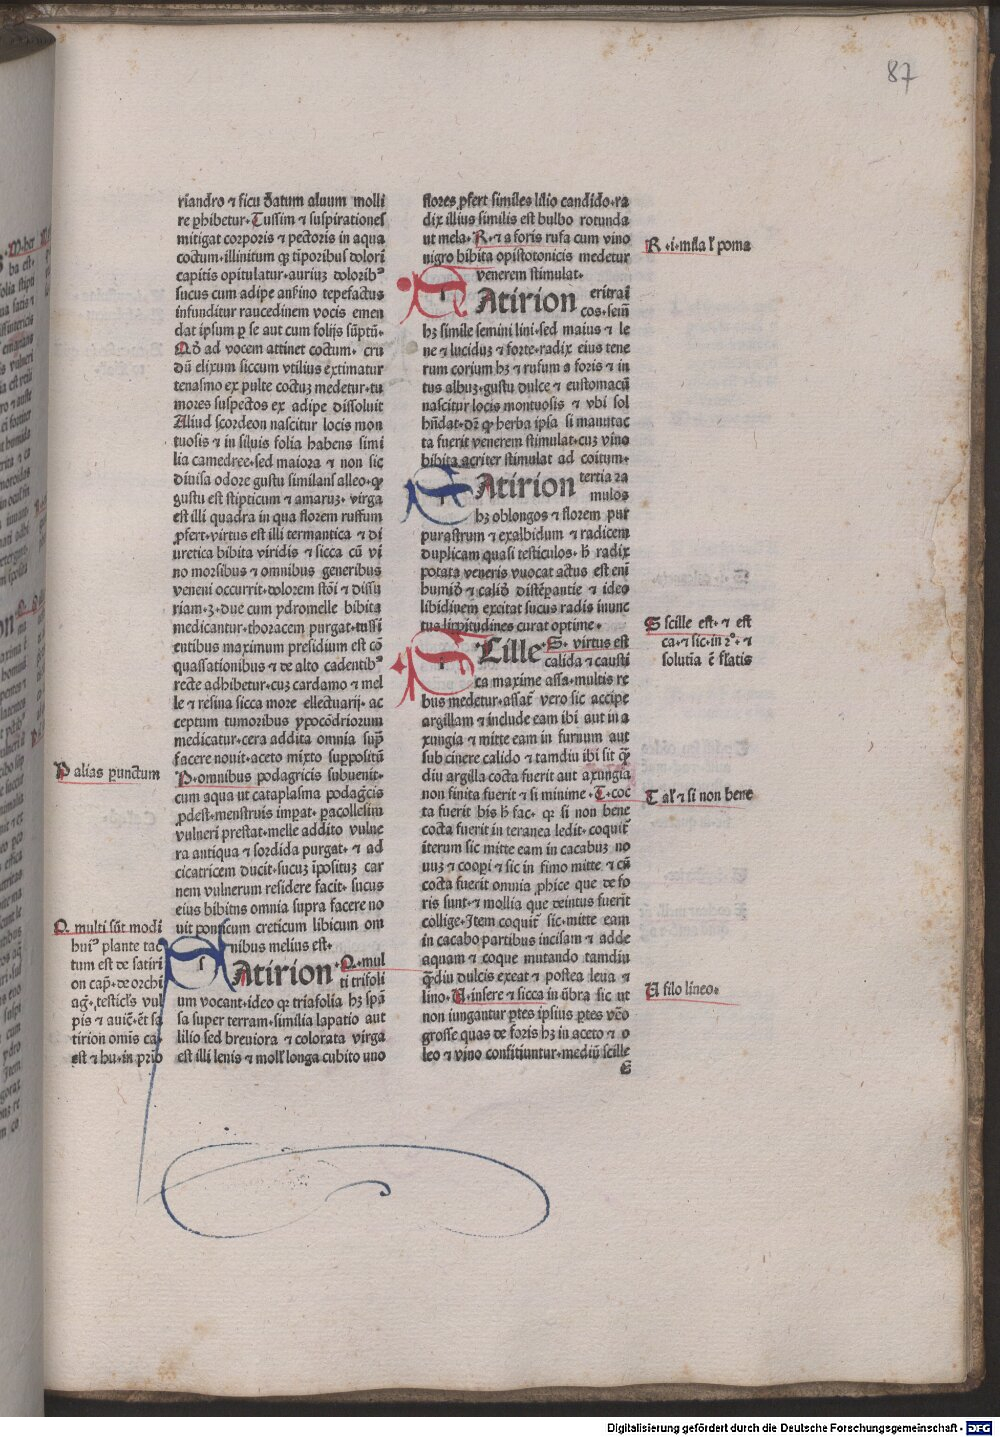 87
riandro ⁊ ficu datum aluum molli
re ꝓhibetur·Tussim ⁊ suspirationes
mitigat corporis ⁊ pectoris in aqua
coctum·illinitum qꝫ tiporibus dolorī
capitis opitulatur·auriuꝫ doloribꝰ
sucus cum adipe anſino tepefactus
infunditur raucedinem vocis emen
dat ipsum ꝑ se aut cum folijs sūptū·
Qd̄ ad vocem attinet coctum· cru
dū elixum siccum vtilius extimatur
tenasmo ex pulte coctuꝫ medetur·tu
mores suspectos ex adipe dissoluit
Aliud scordeon nascitur locis mon
tuosis ⁊ in siluis folia habens simi
lia camedree·sed maiora ⁊ non sic
diuisa odore gustu similans alleo·qꝫ
gustu est stipticum ⁊ amaruꝫ· virga
est illi quadra in qua florem ruffum
ꝓfert·virtus est illi termantica ⁊ di
uretica bibita viridis ⁊ sicca cū vi
no morsibus ⁊ omnibus generibus
veneni occurrit·dolorem stōi ⁊ dissu
riam·ʒ·due cum ydromelle bibita
medicantur·thoracem purgat·tussi
entibus maximum presidium est cō
quassationibus ⁊ de alto cadentibꝰ
recte adhibetur·cuꝫ cardamo ⁊ mel
le ⁊ resina sicca more ellectuarij· ac
ceptum tumoribus ypocōdriorum
medicatur·cera addita omnia sup̄
facere nouit·aceto mixto suppositū
P·omnibus podagricis subuenit·
cum aqua ut cataplasma podag̓cis
ꝓdest·menstruis impat· ꝑacollesim
vulneri prestat·melle addito vulne
ra antiqua ⁊ sordida purgat· ⁊ ad
cicatricem ducit·sucuꝫ īpositus car
nem vulnerum residere facit· sucus
eius bibitus omnia supra facere no
uit ponticum creticum libicum om
nibus melius est·
Satirion ·Q·mul
ti trifoli
um vocant·ideo qꝫ triafolia hꝫ spā
sa super terram·similia lapatio aut
lilio sed breuiora ⁊ colorata virga
est illi lenis ⁊ moll' longa cubito uno
P alias punctum
Q multi sūt modi
huiꝰ plante tac
tum est de satiri
on cap̄· de orchi
ag̓·testicl's vul
pis ⁊ auic̄·ēt sa
tirion om̄is ca·
est ⁊ hu·in prio
flores ꝓfert similes lilio candido·ra
dix illius similis est bulbo rotunda
ut mela·R·⁊ a foris rufa cum vino
nigro bibita opistotonicis medetur
venerem stimulat·
Satirion eritrai
cos·seīn
hꝫ simile semini lini·sed maius ⁊ le
ne ⁊ luciduꝫ ⁊ forte·radix eius tene
rum corium hꝫ ⁊ rufum a foris ⁊ in
tus albuꝫ·gustu dulce ⁊ eustomacū
nascitur locis montuosis ⁊ vbi sol
hn̄dat·dr̄ qꝫ herba ipsa si manutac
ta fuerit venerem stimulat·cuꝫ vino
bibita acriter stimulat ad coitum·
Satirion tertia ra
mulos
hꝫ oblongos ⁊ florem pur
purastrum ⁊ exalbidum ⁊ radicem
duplicam quasi testiculos· h̄ radix
potata veneris vuocat actus est enī
humid̄ ⁊ calid̄ distēperantie ⁊ ideo
libidinem excitat sucus radis inunc
tus lippitudines curat optime·
SCille·S· virtus est
calida ⁊ causti
ca maxime assa·multis re
bus medetur·assat̄ vero sic accipe
argillam ⁊ include eam ibi aut in a
xungia ⁊ mitte eam in furnum aut
sub cinere calido ⁊ tamdiu ibi sit qꝫ
diu argilla cocta fuerit aut axungia
non finita fuerit ⁊ si minime·T·coc
ta fuerit his h̄ fac· qꝛ si non bene
cocta fuerit in teranea ledit·coquit̄
iterum sic mitte eam in cacabuꝫ no
uuꝫ ⁊ coopi ⁊ sic in fimo mitte ⁊ cū
cocta fuerit omnia ꝓhice que de fo
ris sunt·⁊ mollia que deintus fuerit
collige·Item coquit̄ sic·mitte eam
in cacabo partibus incisam ⁊ adde
aquam ⁊ coque mutando tamdiu
qꝫdiu dulcis exeat ⁊ postea leua ⁊
lino·U·insere ⁊ sicca in ūbra sic ut
non iungantur ptes ipsius ptes v̄o
grosse quas de foris hꝫ in aceto ⁊ o
leo ⁊ vino confitiuntur·mediū scille
R·i·mīla l' poma
S scille est·⁊ est
ca·⁊ sic·in 2°·⁊
solutia ē flatis
T al' ⁊ si non bene
U filo lineo·
Digitalisierung gefördert durch die Deutsche Forschungsgemeinschaft - DFG